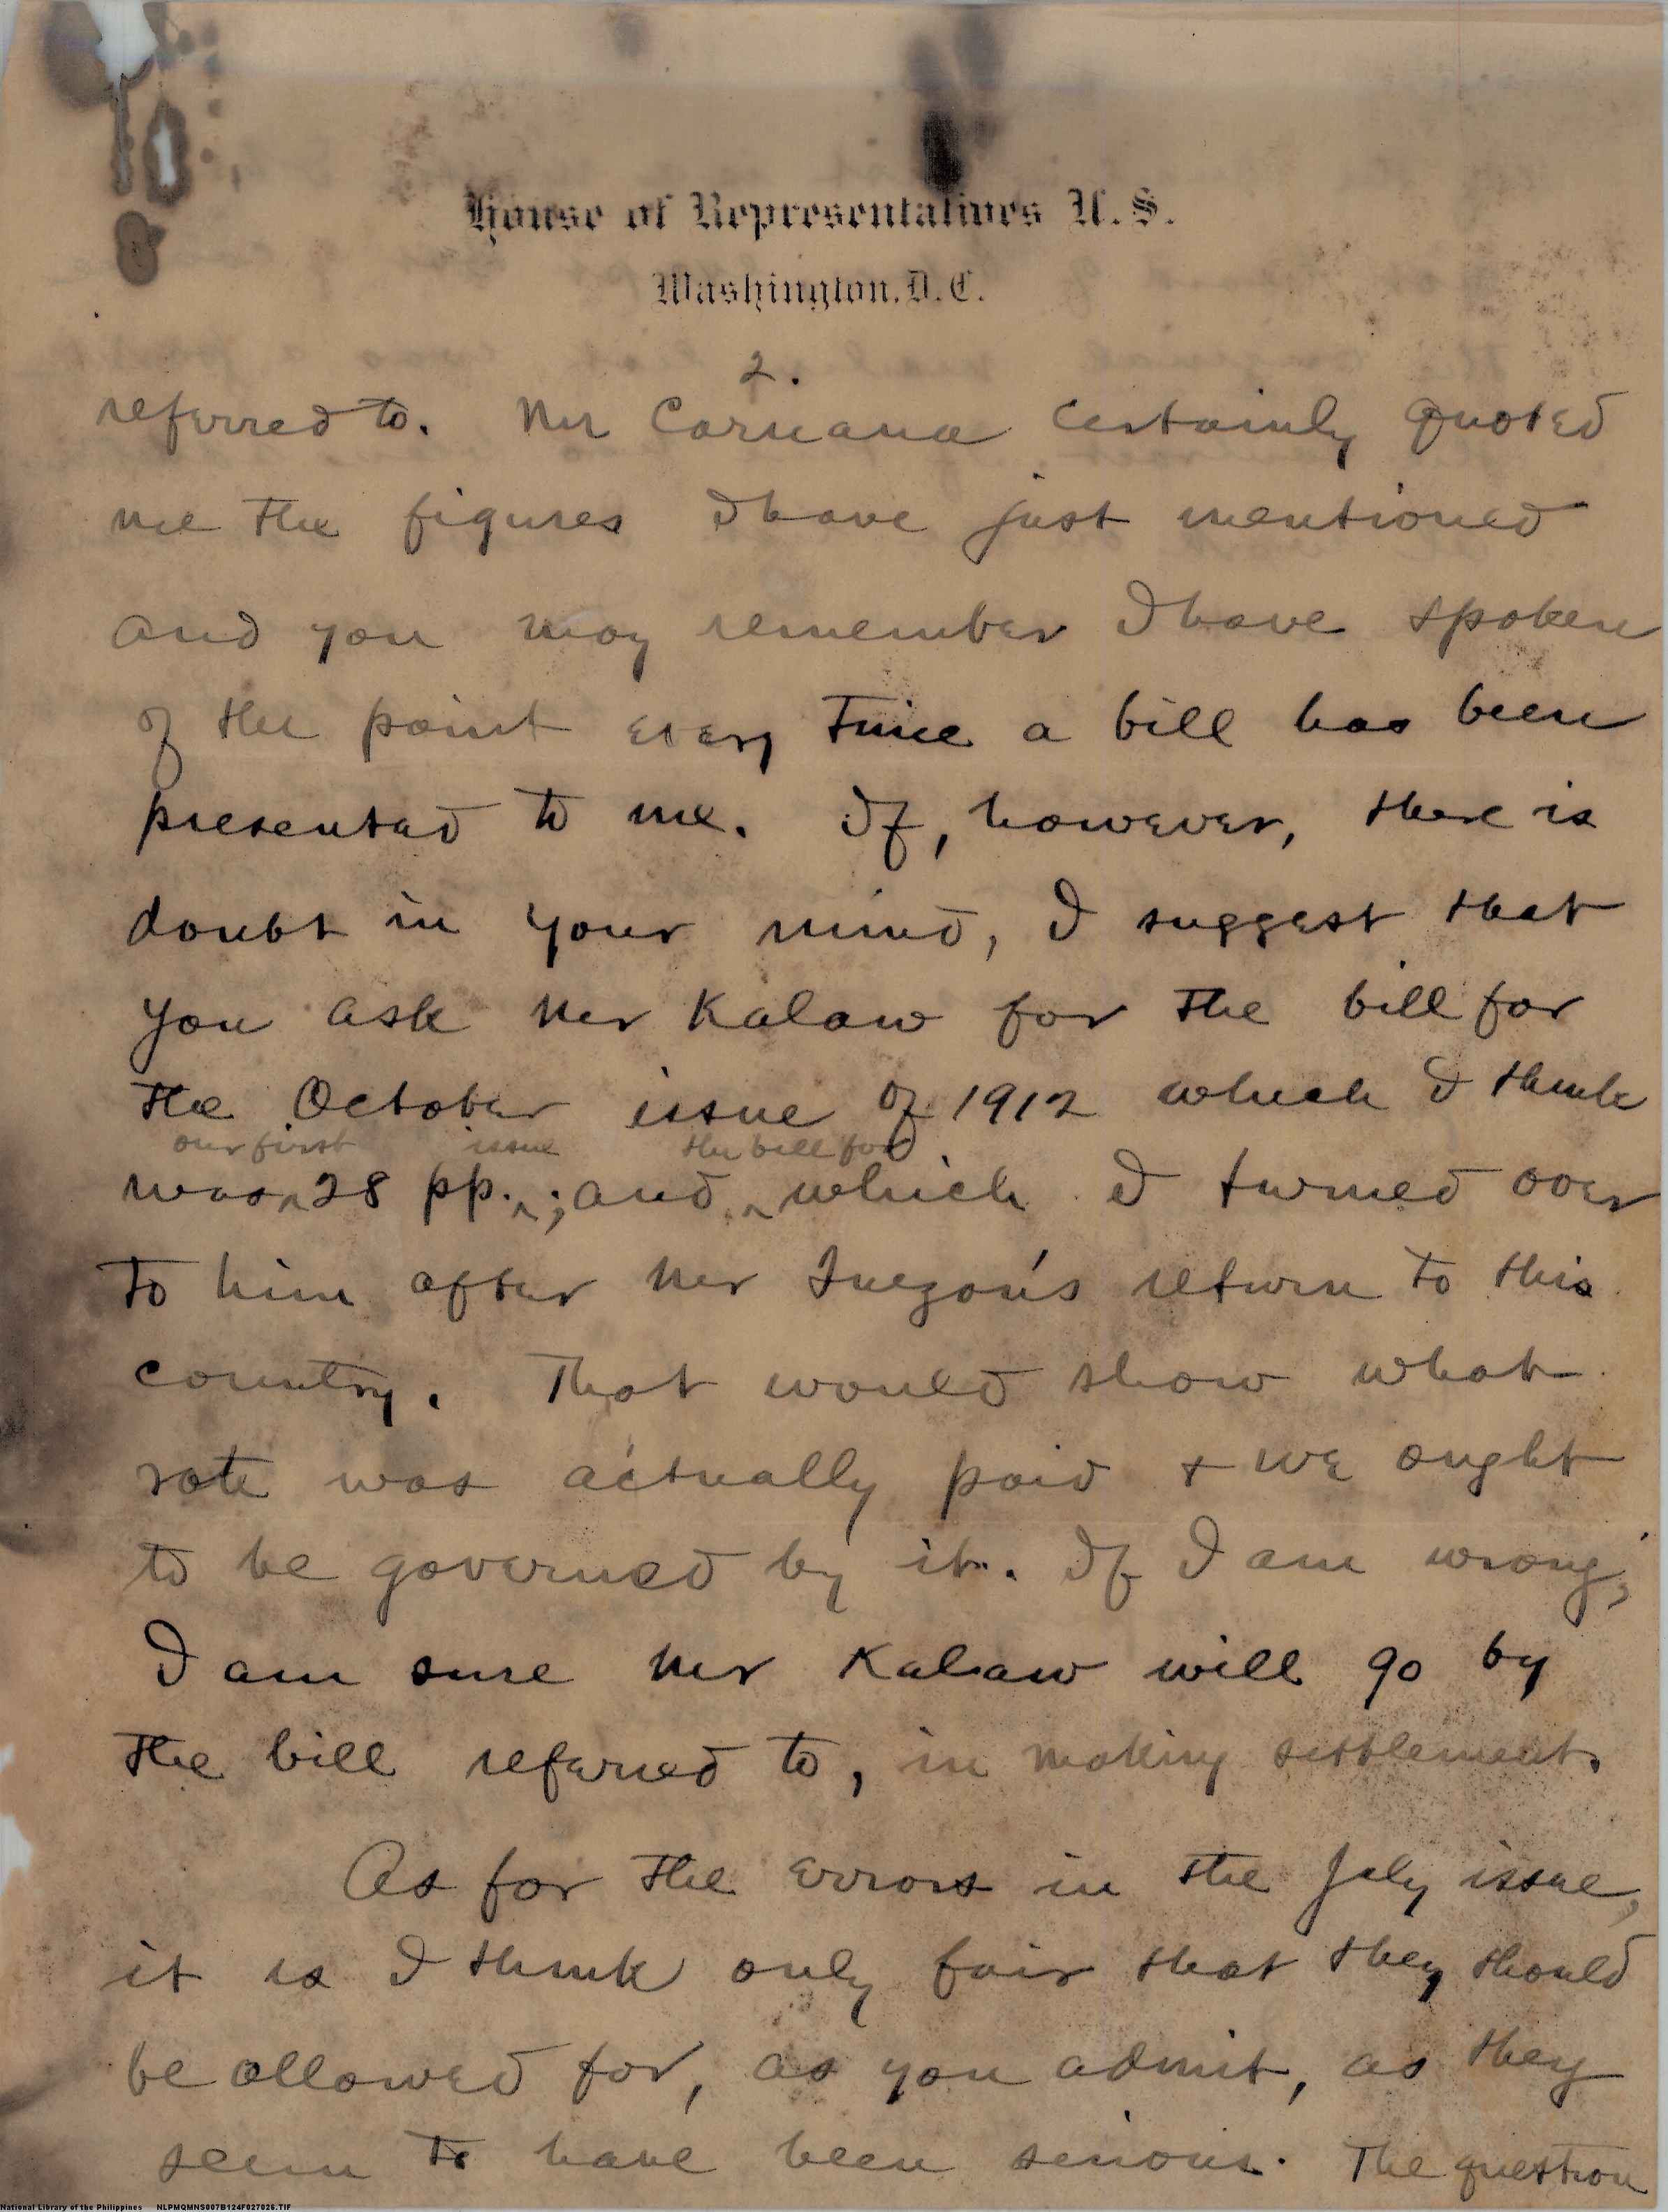 House of Representatives U.S.
Washington, D.C.
2.
referred to. Mr certainly quoted
me the figures I have just mentioned
and you may remember I have spoken
of the point every time a bill has been
presented to me. If, however, there is
doubt in your mind, I suggest that
you ask Mr Kalaw for the bill for
the October issue of 1912 which I think
our first issue the bill for
was 28 pp. ; and which I turned over
to him after Mr Quezon's return to this
country. That would show what
rate was actually paid & we ought
to be governed by it. If I am wrong,
I am sure Mr Kalaw will go by
the bill referred to, in making settlement.
As for the errors in the July issue,
it is I think only fair that they should
be allowed for, as you admit, as they
seem to have been serious. The question
National Library of the Philippines NLPMQMNS007B124F027026.TIF